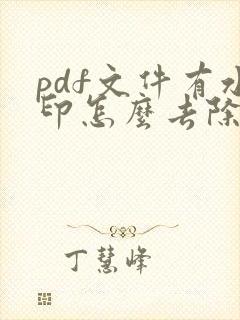 pdf文件有水
印怎麼去除
丁慧峰